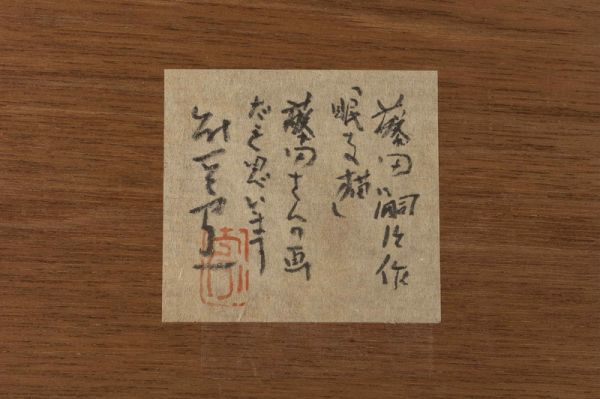 藤田嗣治作
「眠る猫」
藤田さんの画
だと思います